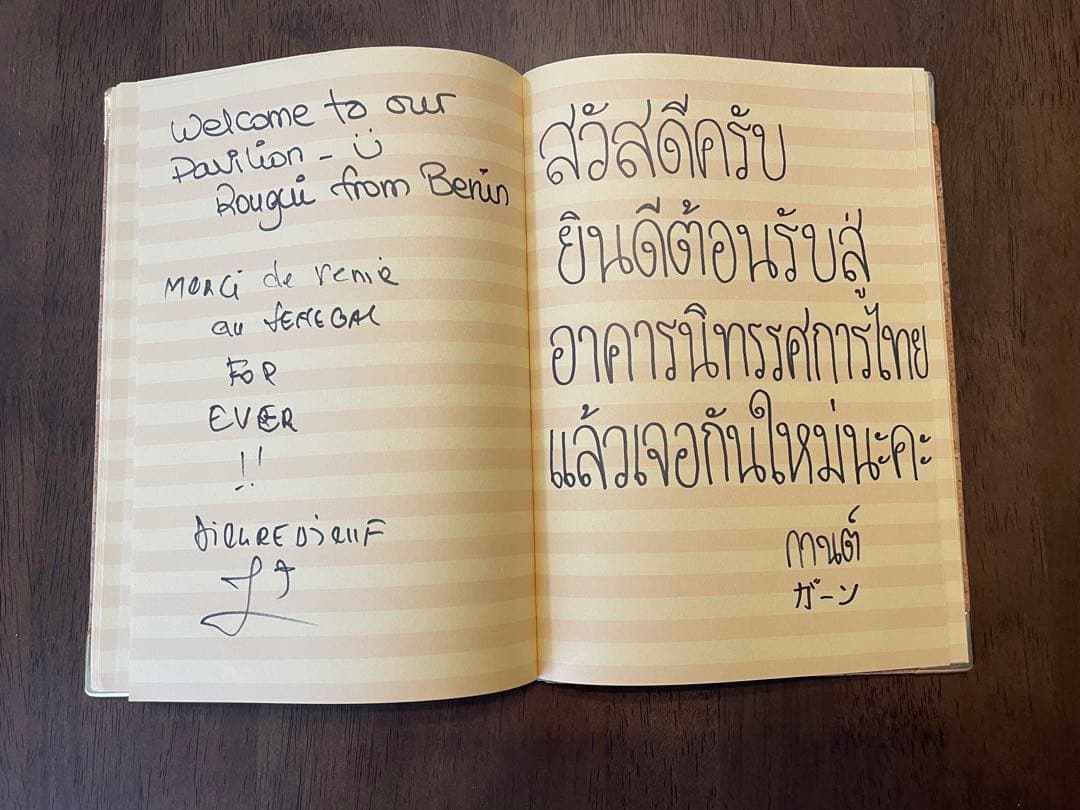 Welcome to our
Pavilion - ü
Rougui from Benin
Merci de venir
au SENEGAL
FOR
EVER
!!
สวัสดีครับ
ยินดีต้อนรับสู่
อาคารนิทรรศการไทย
แล้วเจอกันใหม่นะคะ
กานต์
ガーン